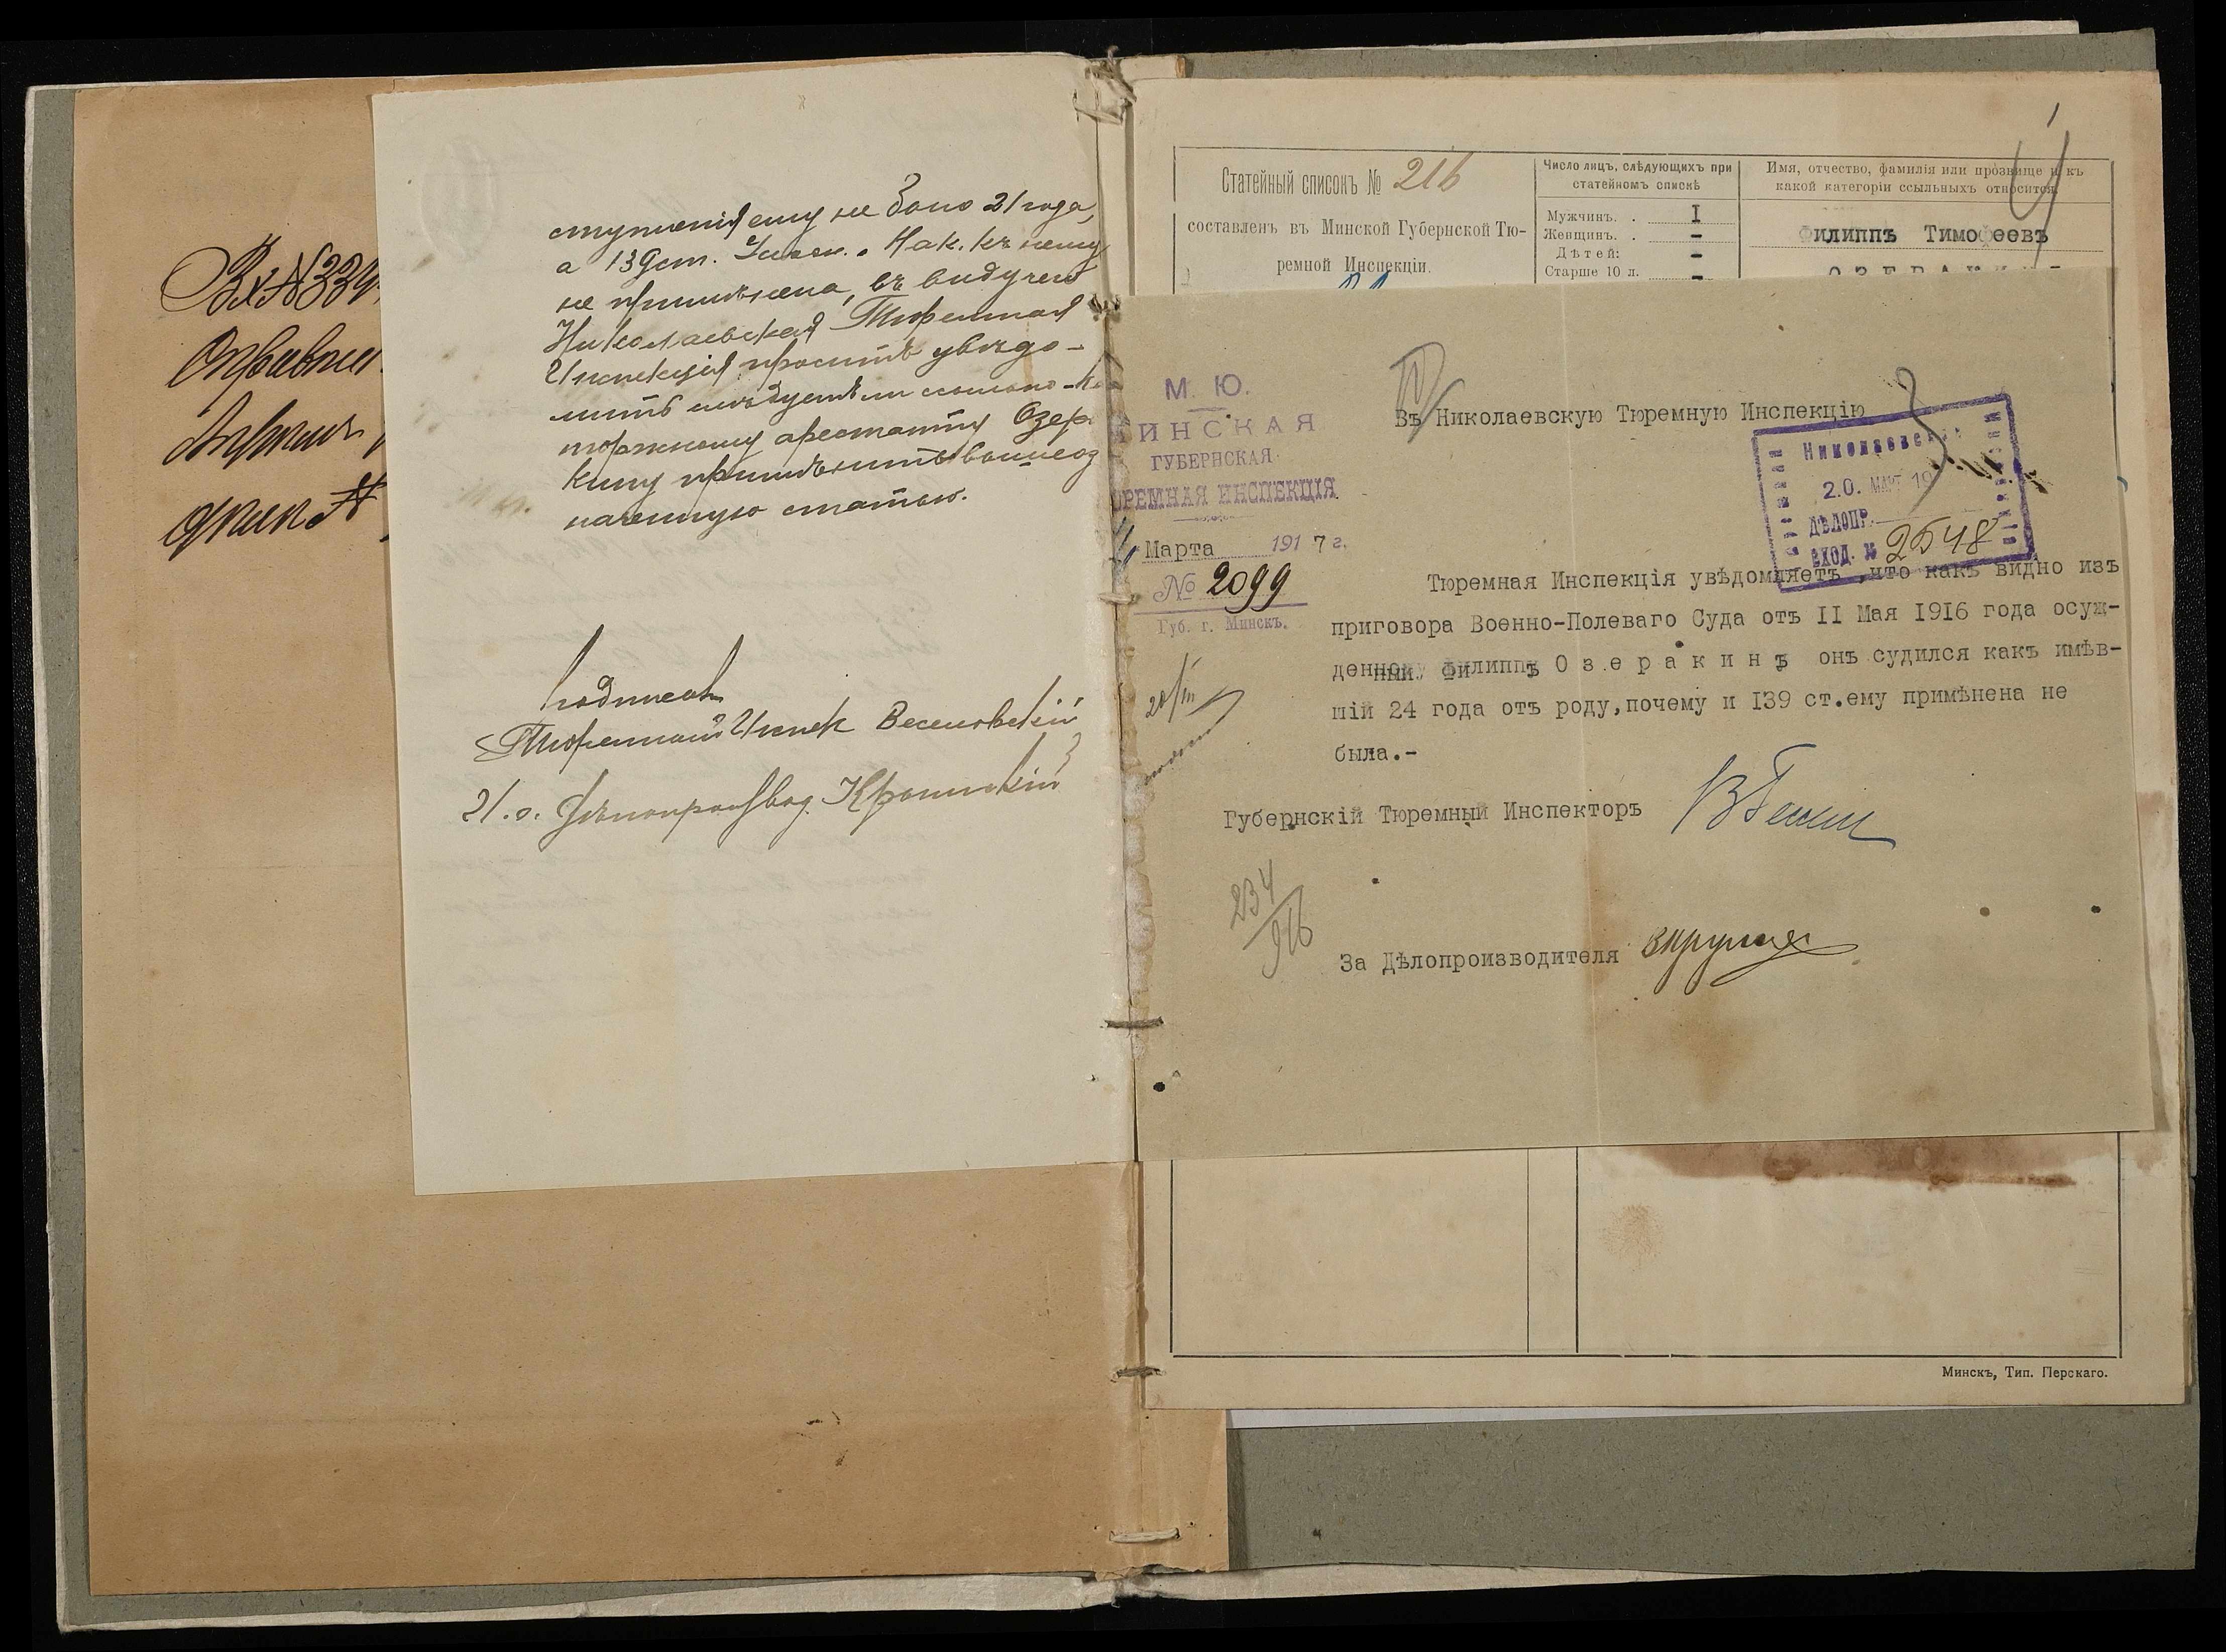 Вх №3394
ступленія ему не было 21 года,
а 139 ст. Улож. о Нак. къ нему
не примѣнена, въ виду чего
Николаевская Тюремная
Инспекція проситъ увѣдо-
мить слѣдуетъ ли ссыльно-ка
торжному арестанту Озера
кину примѣнить вышеоз
наченную статью.
Подписали
Тюремный Инспек Веселовскій
И. о. Дѣлопроизвод.
Статейный списокъ № 216
составленъ въ Минской Губернской Тю-
ремной Инспекціи.
Число лицъ, слѣдующихъ при
статейномъ спискѣ
Мужчинъ. . I
Женщинъ. . -
Дѣтей: -
Старше 10 л. -
Имя, отчество, фамилія или прозвище и къ
какой категоріи ссыльныхъ относится
Филиппъ Тимофеевъ
М. Ю.
МИНСКАЯ
ГУБЕРНСКАЯ
ТЮРЕМНАЯ ИНСПЕКЦІЯ
Марта 1917 г.
№ 2099
Губ. г. Минскъ.
Въ Николаевскую Тюремную Инспекцію
Николаевск
20. МАРТ 19
ДѢЛОПР.
ВХОД. № 2548
Тюремная Инспекція увѣдомляетъ, что какъ видно изъ
приговора Военно-Полеваго Суда отъ II Мая 1916 года осуж-
денный Филиппъ Озеракинъ онъ судился какъ имѣв-
шій 24 года отъ роду, почему и 139 ст. ему примѣнена не
была.-
20/III
Губернскій Тюремный Инспекторъ
234/916
За Дѣлопроизводителя
Минскъ, Тип. Перскаго.